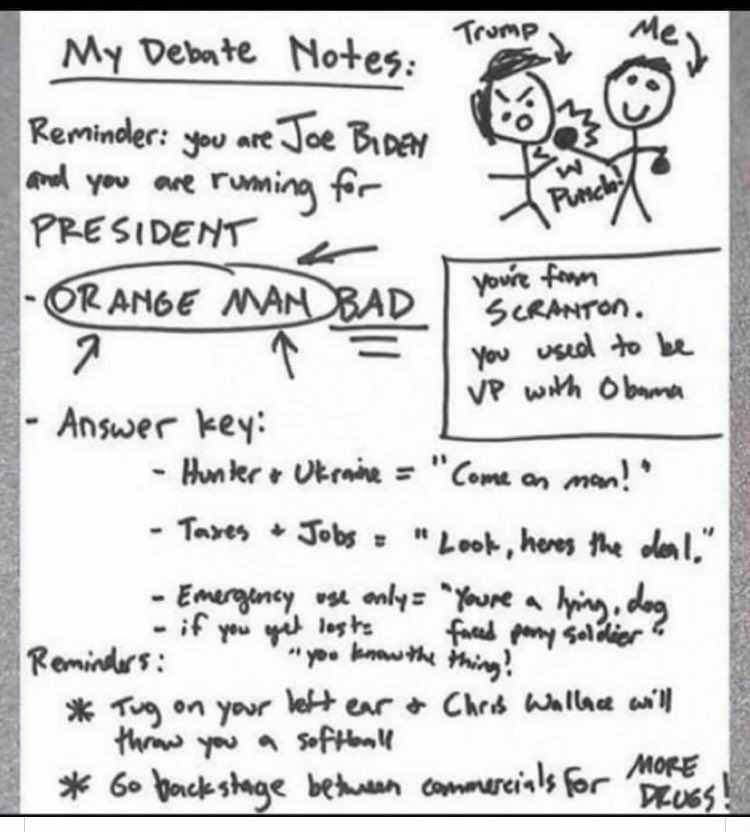 My Debate Notes:
Trump
Me
Punch!
Reminder: you are Joe BIDEN
and you are running for
PRESIDENT
- ORANGE MAN BAD
you're from
SCRANTON.
you used to be
VP with Obama
- Answer key:
- Hunter + Ukraine = "Come on man!"
- Taxes + Jobs = "Look, heres the deal."
- Emergency use only = "Youre a lying, dog
faced pony soldier"
- if you get lost =
"you know the thing!
Reminders:
* Tug on your left ear + Chris Wallace will
throw you a softball
* Go backstage between commercials for MORE
DRUGS!